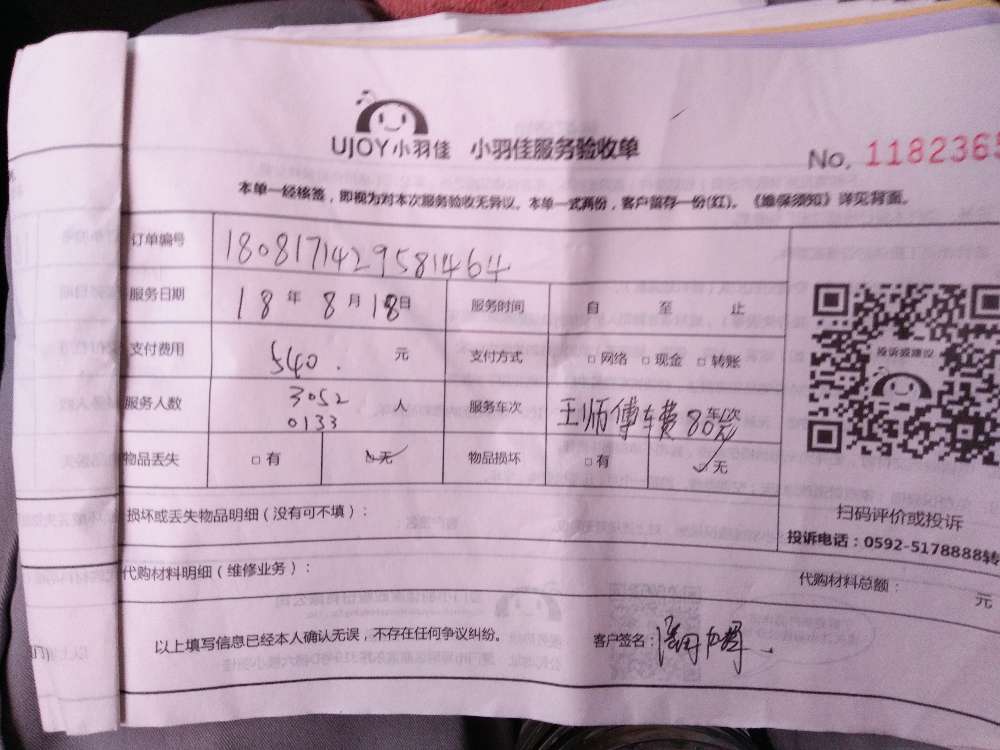 UJOY小羽佳 小羽佳服务验收单
No. 1182365
本单一经核签，即视为对本次服务验收无异议。本单一式两份，客户留存一份(红)。《维保须知》详见背面。
订单编号 180817142958​1464
服务日期 18 年 8 月 18 日 服务时间 自 至 止
支付费用 540. 元 支付方式 □网络 □现金 □转账
投诉或建议
服务人数 3052 0133 人 服务车次 王师傅车费80元 车/次
物品丢失 □有 ✓无 物品损坏 □有 ✓□无
扫码评价或投诉
损坏或丢失物品明细（没有可不填）：
投诉电话：0592-5178888转
代购材料明细（维修业务）： 代购材料总额： 元
以上填写信息已经本人确认无误，不存在任何争议纠纷。 客户签名：